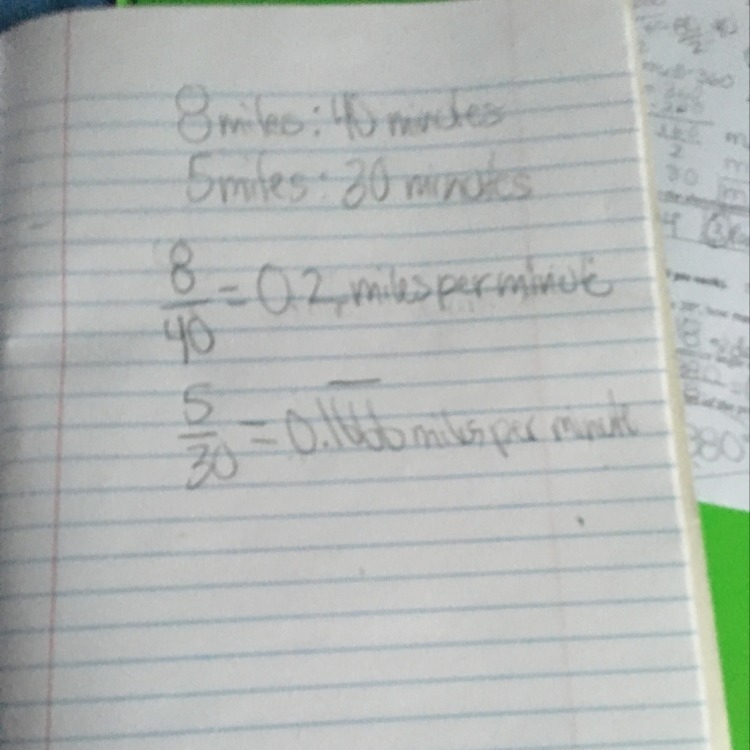 8 miles : 40 minutes
5 miles : 30 minutes
8/40 = 0.2 miles per minute
5/30 = 0.1666 miles per minute
380